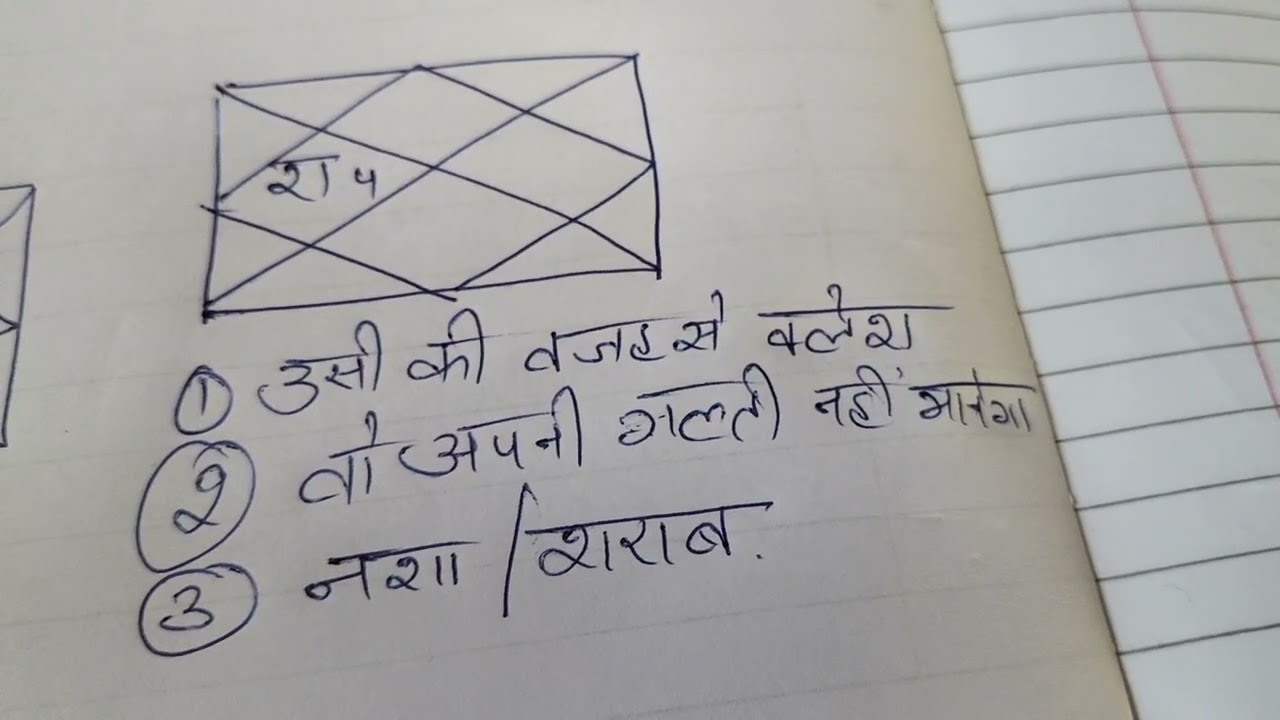 श ५
① उसी की वजह से क्लेश
② वो अपनी गलती नहीं मानेगा
③ नशा / शराब.